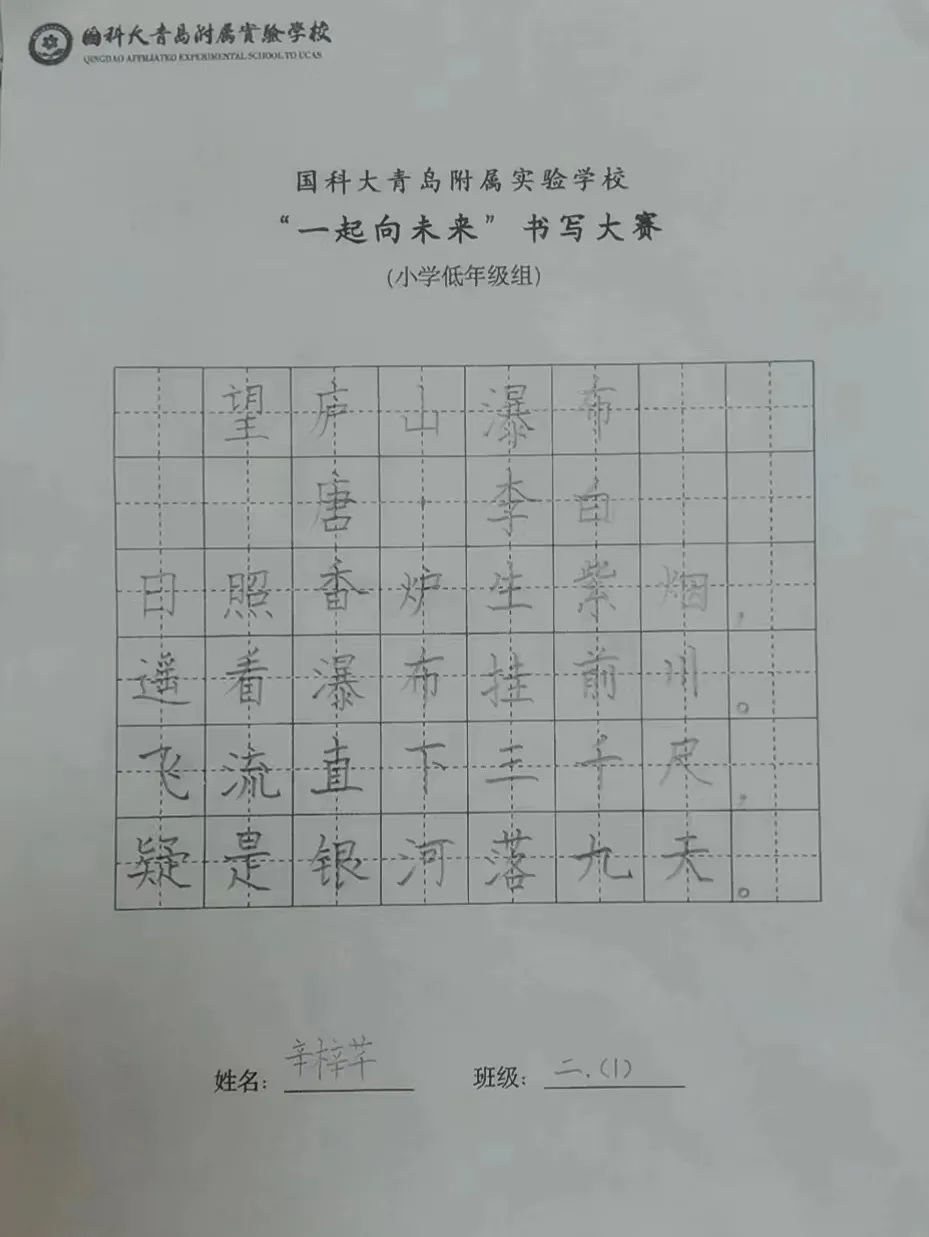 国科大青岛附属實驗学校
QINGDAO AFFILIATED EXPERIMENTAL SCHOOL TO UCAS
国科大青岛附属实验学校
“一起向未来”书写大赛
(小学低年级组)
望庐山瀑布
唐·李白
日照香炉生紫烟,
遥看瀑布挂前川。
飞流直下三千尺,
疑是银河落九天。
姓名: 辛梓芊 班级: 二.(1)